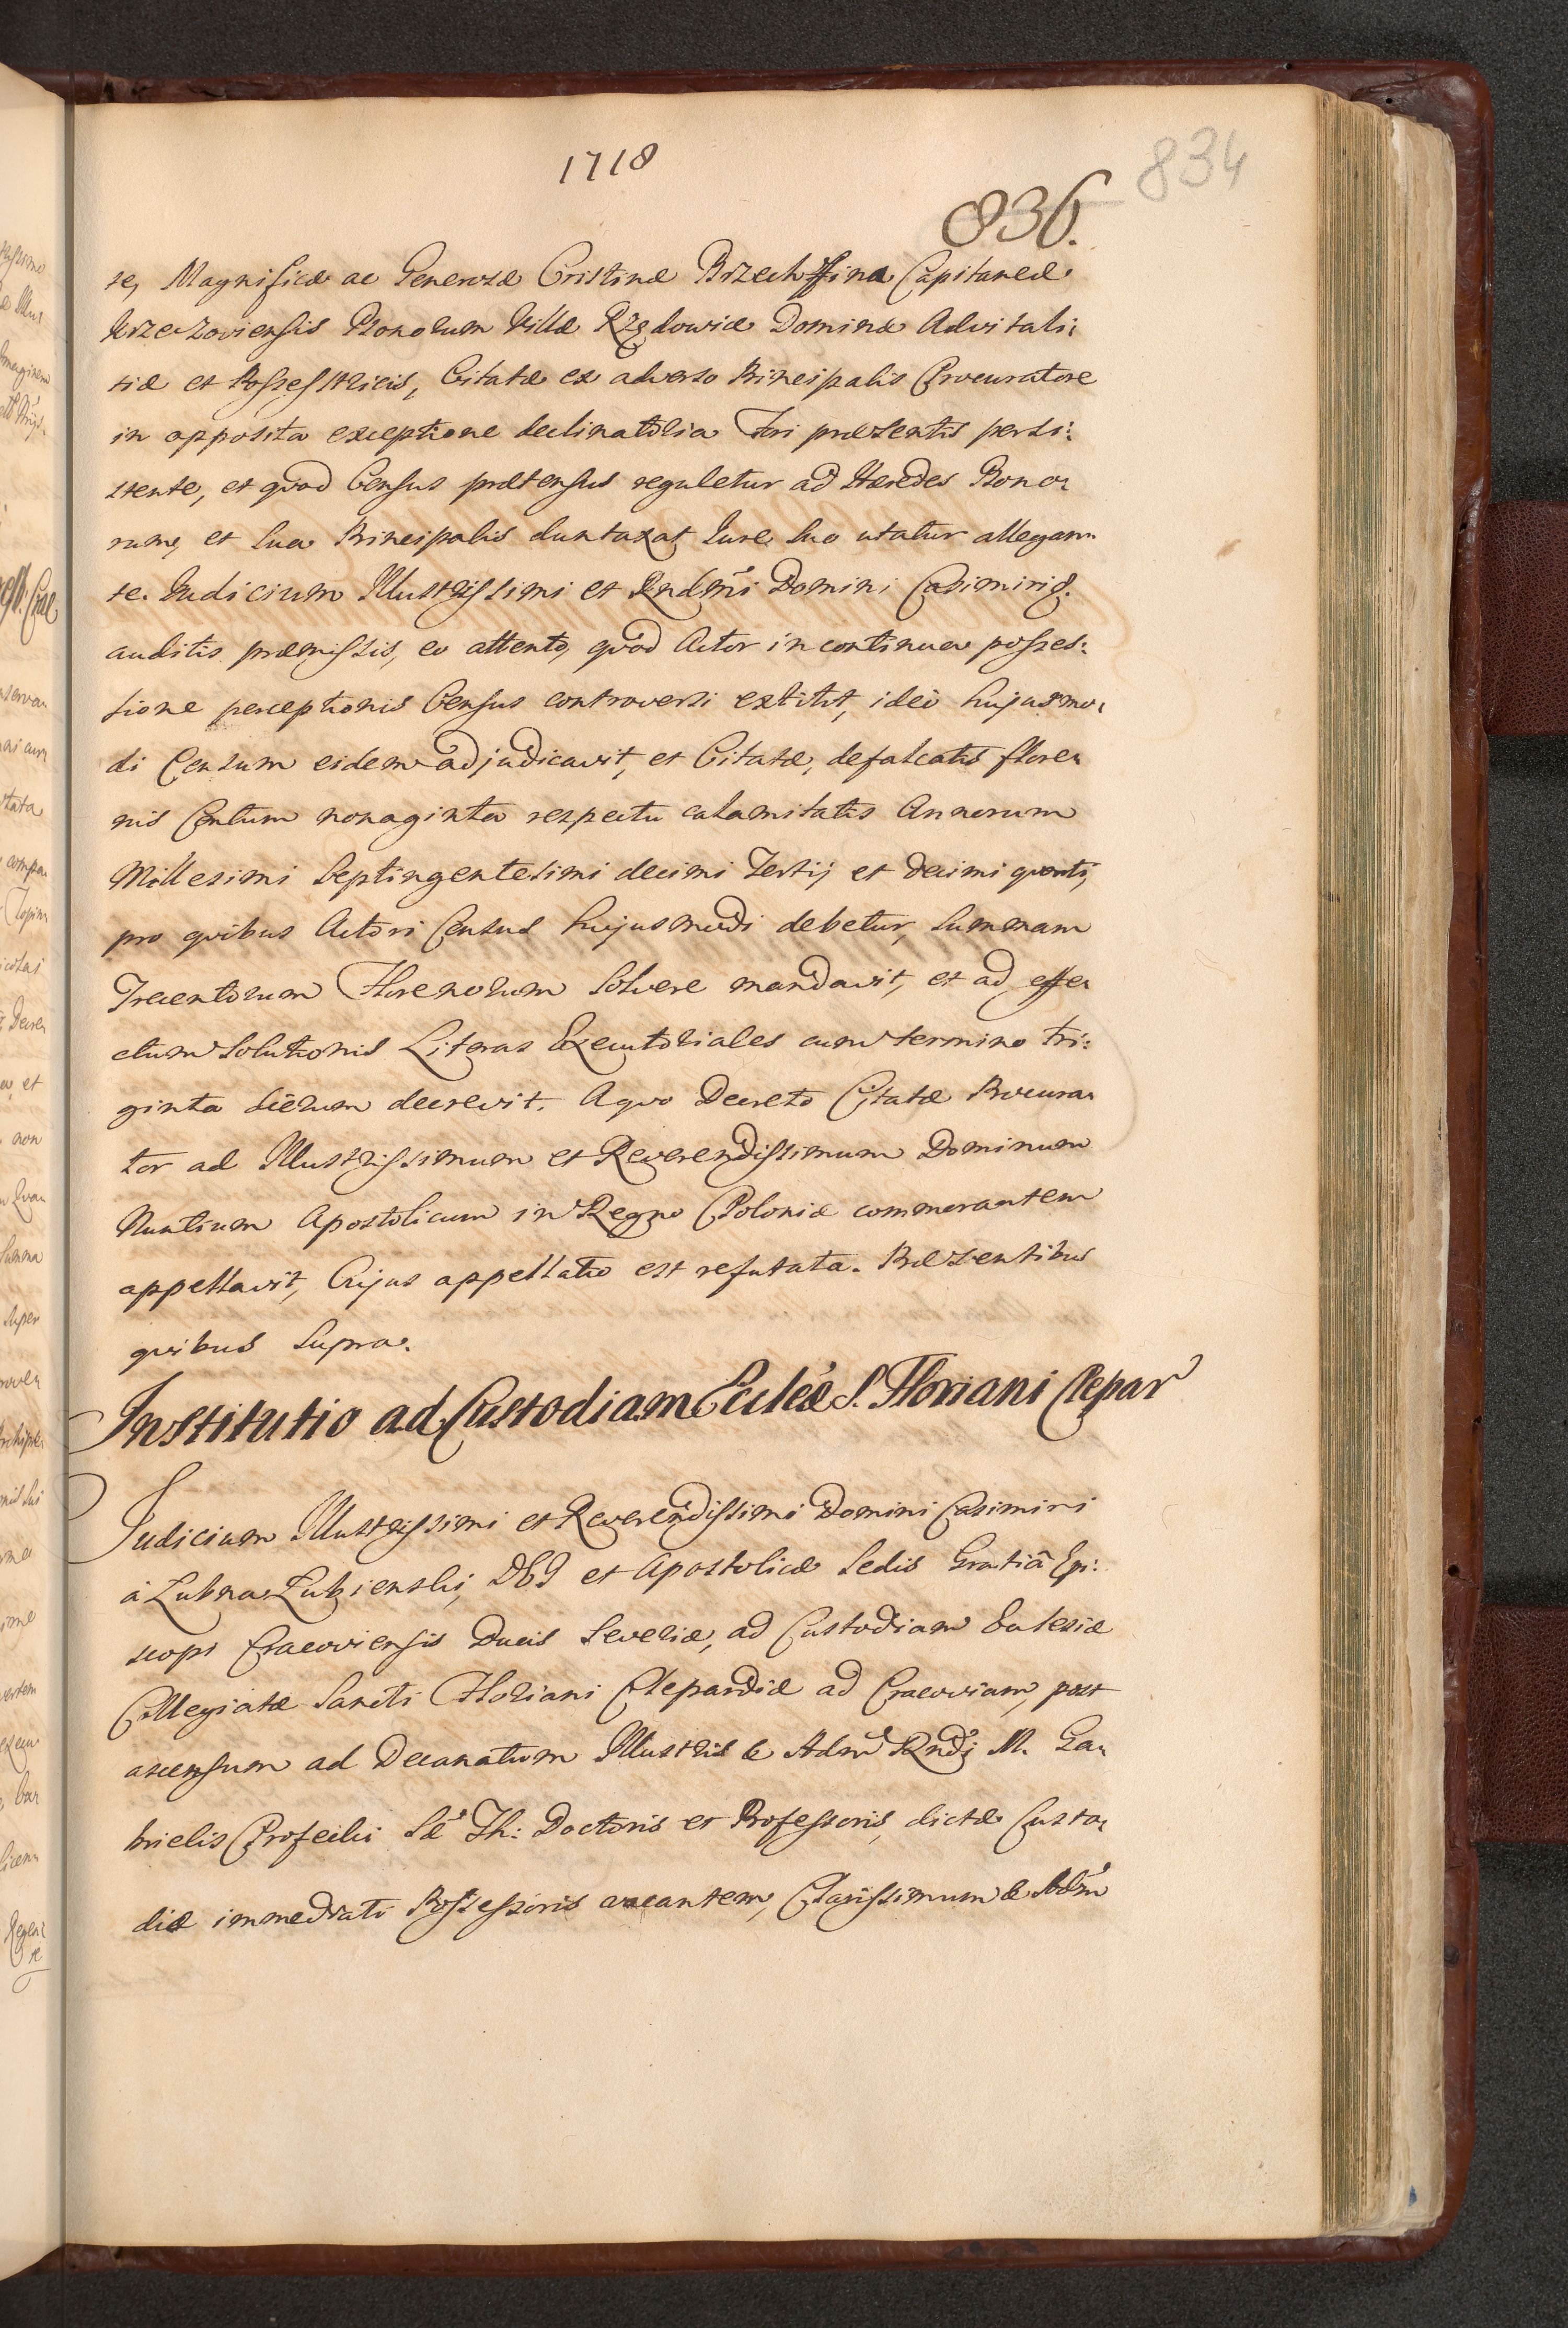 1718
834
836.
te, Magnificæ ac Generosæ Cristinæ Brzechffina Capitaneæ
Krzeczoviensis Bonorum Villæ Rzędowiæ Dominæ Advitali:
tiæ et Possessricis, Citatæ ex adverso Principalis Procuratore
in opposita exceptione declinatoria Fori præsentis persi:
stente, et quod Census prætensus reguletur ad Hæredes Bono:
rum, et sua Principalis duntaxat Jure suo utatur allegan:
te. Judicium Illustrissimi et Rndmi Domini Casimiri &.
auditis præmissis, eo attento, quod Actor in continua posses:
sione perceptionis Census controversi extitit, ideo hujusmo:
di Censum eidem adjudicavit, et Citatæ, defalcatis flore:
nis Centum nonaginta respectu calamitatis Annorum
Millesimi Septingentesimi decimi Tertij et decimi quarti,
pro quibus Actori Census hujusmodi debetur, Summam
Trecentorum Florenorum Solvere mandavit, et ad effe:
ctum Solutionis Literas Executoriales cum termino tri:
ginta dierum decrevit. A quo Decreto Citatæ Procura:
tor ad Illustrissimum et Reverendissimum Dominum
Nuntium Apostolicum in Regno Poloniæ commorantem
appellavit, Cujus appellatio est refutata. Præsentibus
quibus Supra.
Institutio ad Custodiam Eccleæ S. Floriani Clepar
Judicium Illustrissimi et Reverendissimi Domini Casimiri
à Lubna Lubienski, DEI et Apostolicæ Sedis Gratiâ Epi:
scopi Cracoviensis Ducis Severiæ, ad Custodiam Ecclesiæ
Collegiatæ Sancti Floriani Clepardiæ ad Cracoviam, post
ascensum ad Decanatum Illustris & Adm Rndi M. Ga:
brielis Profecki Sæ Th: Doctoris et Professoris, dictæ Custo:
diæ immediati Possessoris vacantem, Clarissimum & Adm